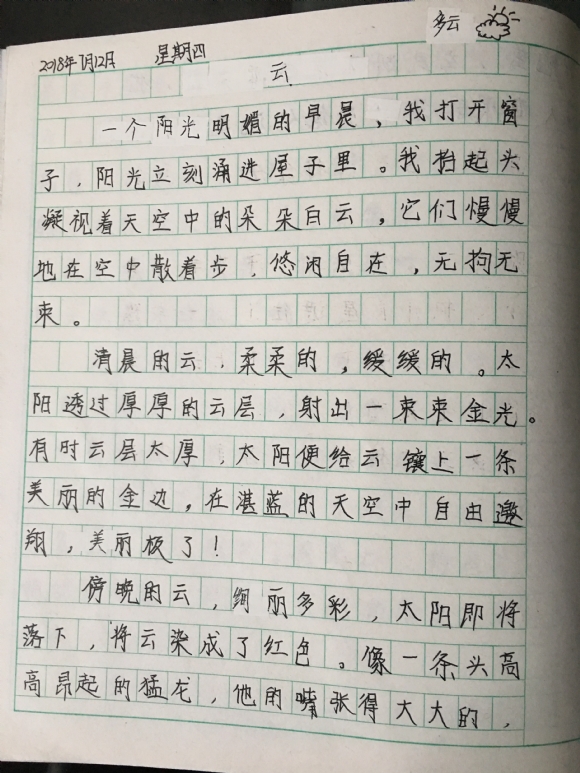 2018年7月12日 星期四 多云
云
一个阳光明媚的早晨，我打开窗
子，阳光立刻涌进屋子里。我抬起头
凝视着天空中的朵朵白云，它们慢慢
地在空中散着步，悠闲自在，无拘无
束。
清晨的云，柔柔的，缓缓的。太
阳透过厚厚的云层，射出一束束金光。
有时云层太厚，太阳便给云镶上一条
美丽的金边，在湛蓝的天空中自由遨
翔，美丽极了！
傍晚的云，绚丽多彩，太阳即将
落下，将云染成了红色。像一条头高
高昂起的猛龙，他的嘴张得大大的，